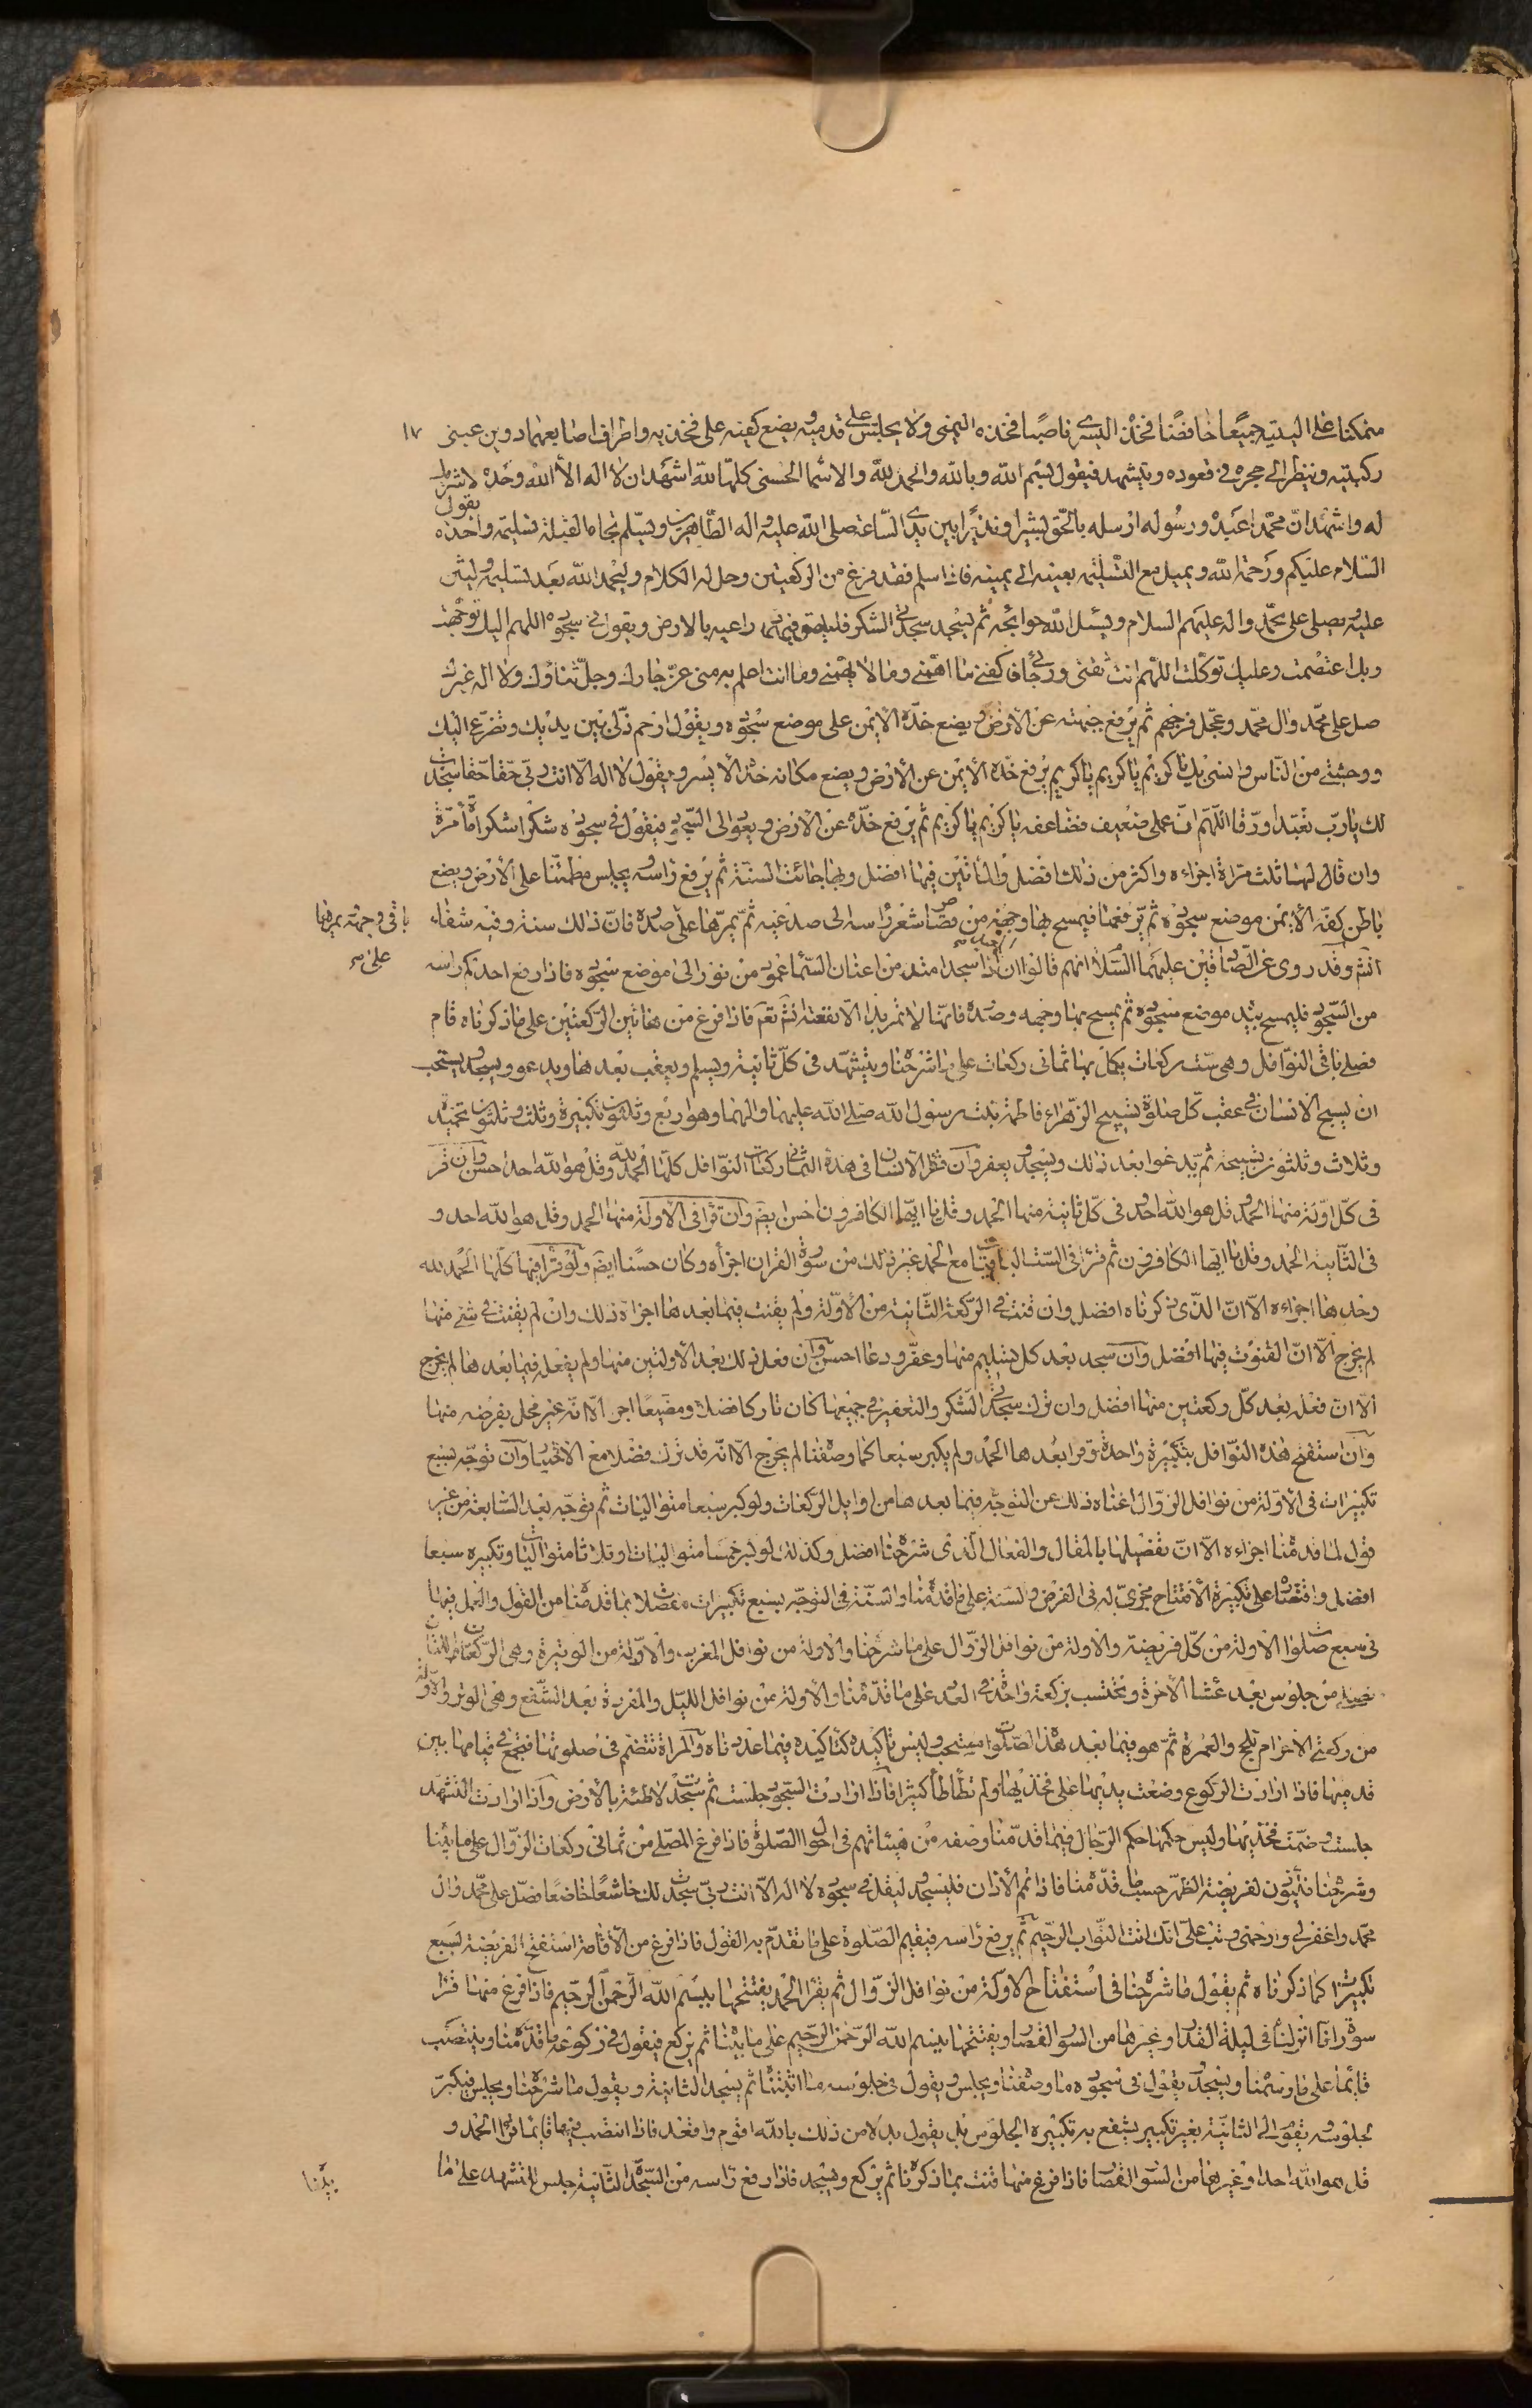 متمكنا على اليتيه جميعا خافضا فخذه اليسرى ناصبا فخذه اليمنى ولا يجلس على قدميه ويضع كفيه على فخذيه واطراف اصابعهما دوين عينى ١٧
ركبتيه وينظر الى حجره فى قعوده ويتشهد فيقول بسم الله وبالله والحمد لله والاسما الحسنى كلها لله اشهد ان لا اله الا الله وحده لا شريك
له واشهد ان محمدا عبده ورسوله ارسله بالحق بشيرا ونذيرا بين يدى الساعة صلى الله عليه واله الطاهرين ويسلم تجاه القبلة تسليمة واحدة يقول
السلام عليكم ورحمة الله ويميل مع التسليمة بعينه الى يمينه فاذا سلم فقد فرغ من الركعتين وحل له الكلام وليحمد الله بعد تسليمه وليثن
عليه ويصلى على محمد واله عليهم السلام ويسئل الله حوائجه ثم ليسجد سجدتى الشكر فليلصق فيهما ذراعيه بالارض ويقول فى سجوده اللهم اليك توجهت
وبك اعتصمت وعليك توكلت اللهم انت ثقتى ورجائى فاكفنى ما اهمنى وما لا يهمنى وما انت اعلم به منى عز جارك وجل ثناؤك ولا اله غيرك
صل على محمد وال محمد وعجل فرجهم ثم يرفع جبهته عن الارض ويضع خده الايمن على موضع سجوده ويقول ارحم ذلى بين يديك وتضرعى اليك
ووحشتى من الناس وانسى بك يا كريم يا كريم يا كريم يرفع خده الايمن عن الارض ويضع مكانه خده الايسر ويقول لا اله الا انت ربى حقا حقا سجدت
لك يا رب تعبدا ورقا اللهم ان عملى ضعيف فضاعفه يا كريم يا كريم ثم يرفع خده عن الارض ويعود الى السجود فيقول فى سجوده شكرا شكرا مائة مرة
وان قال لهما ثلث مرات اجزاءه واكثر من ذلك افضل والمأتين فيها افضل وبها جائت السنة ثم يرفع راسه يجلس مطمئنا على الارض ويضع
باطن كفه الايمن موضع سجوده ثم يرفعها فيمسح بها وجهه من قصاص شعر راسه الى صدغيه ثم يمرها على صدره فان ذلك سنة وفيه شفاء باقى وجهه يمرها
انشم وقد روى عن الصادقين عليهما السلام انهم قالوا ان اذا سجد امتد من اعنان السماء عمود من نور الى موضع سجوده فاذا رفع احدكم راسه على م
من السجود فليمسح بيده موضع سجوده ثم يمسح بها وجهه وصدره فانها لا تمر بداء الا نفعته انشم تعم فاذا فرغ من هاتين الركعتين على ما ذكرناه قام
فصلى باقى النوافل وهى ست ركعات يكمل بها ثمانى ركعات على ما شرحنا ويتشهد فى كل ثانية ويسلم ويعقب بعدها ويدعو ويسجد ويستحب
ان يسبح الانسان فى عقب كل صلوة تسبيح الزهراء فاطمة بنت رسول الله صلى الله عليهما والهما وهو اربع وثلثون تكبيرة وثلث وثلثون تحميدة
وثلاث وثلثون تسبيحة ثم يدعوا بعد ذلك ويسجد ويعفر وان قرا الانسان فى هذه الثمانى ركعات النوافل كلها الحمد لله وقل هو الله احد احسن وان قرء
فى كل اولة منها الحمد وقل هو الله احد وفى كل ثانية منها الحمد وقل يا ايها الكافرون احسن ايضم وان قرا فى الاولة منها الحمد وقل هو الله احد و
فى الثانية الحمد وقل يا ايها الكافرون ثم قرا فى الست الباقيات مع الحمد غير ذلك من سورة القران اجزاه وكان حسنا ايضم ولو قرا فيها كلها الحمد لله
وحدها اجزاءه الا ان الذى ذكرناه افضل وان قنت فى الركعة الثانية من الاولة ولم يقنت فيما بعدها اجزاه ذلك وان لم يقنت فى شئ منها
لم يحرج الا ان القنوت فيها افضل وان سجد بعد كل تسليم منها وعفر ودعا احسن وان فعل ذلك بعد الاولتين منها ولم يفعله فيما بعدها لم يحرج
الا ان فعله بعد كل ركعتين منها افضل وان ترك سجدتى الشكر والتعفير فى جميعها كان تاركا فضلا ومضيعا اجرا الا انه غير مخل بفرض منها
وان استفتح هذه النوافل بتكبيرة واحدة وقرا بعدها الحمد ولم يكبر سبعا كما وصفنا لم يحرج الا انه قد ترك فضلا مع الاختيار وان توجه بسبع
تكبيرات فى الاولة من نوافل الزوال اغناه ذلك عن التوجه فيما بعدها من اوايل الركعات ولو كبر سبعا متواليات ثم توجه بعد السابعة من غير
قول لما قدمنا اجزاءه الا ان تفضيلها بالمقال والفعال الذى شرحنا افضل وكذلك لو كبر خمسا متواليات او ثلاثا متواليات وتكبيره سبعا
افضل واقتصاره على تكبيرة الافتتاح مجزى له فى الفرض والسنة على ما قدمنا والسنة فى التوجه بسبع تكبيرات مفصلا بما قدمنا من القول والعمل فيها
فى سبع صلوات الاولة من كل فريضة والاولة من نوافل الزوال على ما شرحنا والاولة من نوافل المغرب والاولة من الوتيرة وهى الركعتان اللتان
تصلى من جلوس بعد عشاء الاخرة وتحتسب بركعة واحدة فى العدد على ما قدمنا والاولة من نوافل الليل والمفردة بعد الشفع وهى الوتر والاولة
من ركعتى الاحرام للحج والعمرة ثم هو فيما بعد هذه الصلوات مستحب وليس تاكيده كتاكيده فيما عددناه والمراة تنضم فى صلوتها فتجمع فى قيامها بين
قدميها فاذا ارادت الركوع وضعت يديها على فخذيها ولم تطأطأ كثيرا فاذا ارادت السجود جلست ثم سجدت لاطئة بالارض واذا ارادت التشهد
جلست وضمت فخذيها وليس حكمها حكم الرجال فيما قدمنا وصفه من هيئاتهم فى احوال الصلوة فاذا فرغ المصلى من ثمانى ركعات الزوال على ما بينا
وشرحنا فليؤذن لفريضة الظهر حسبما قدمنا فاذا تم الاذان فليسجد وليقل فى سجوده لا اله الا انت ربى سجدت لك خاشعا خاضعا فصل على محمد وال
محمد واغفر لى وارحمنى وتب على انك انت التواب الرحيم ثم يرفع راسه فيقيم الصلوة على ما تقدم به القول فاذا فرغ من الاقامة استفتح الفريضة بسبع
تكبيرات كما ذكرناه ثم يقول ما شرحنا فى استفتاح الاولة من نوافل الزوال ثم يقرا الحمد يفتتحها ببسم الله الرحمن الرحيم فاذا فرغ منها قرا
سورة انا انزلناه فى ليلة القدر او غيرها من السور القصار ويفتتحها ببسم الله الرحمن الرحيم على ما بينا ثم يركع فيقول فى ركوعه ما قدمنا وينتصب
قائما على ما رسمنا ويسجد ويقول فى سجوده ما وصفنا ويجلس ويقول فى جلوسه ما اثبتنا ثم يسجد الثانية ويقول ما شرحنا ويجلس فيكبر
لجلوسه ويقوم الى الثانية بغير تكبير يشفع به تكبيره الجلوس بل يقول بدلا من ذلك بالله اقوم واقعد فاذا انتصب فيها قايما قرا الحمد و
قل هو الله احد او غيرها من السور القصار فاذا فرغ منها قنت بما ذكرنا ثم يركع ويسجد فاذا رفع راسه من السجدة الثانية جلس للتشهد على ما
بينا